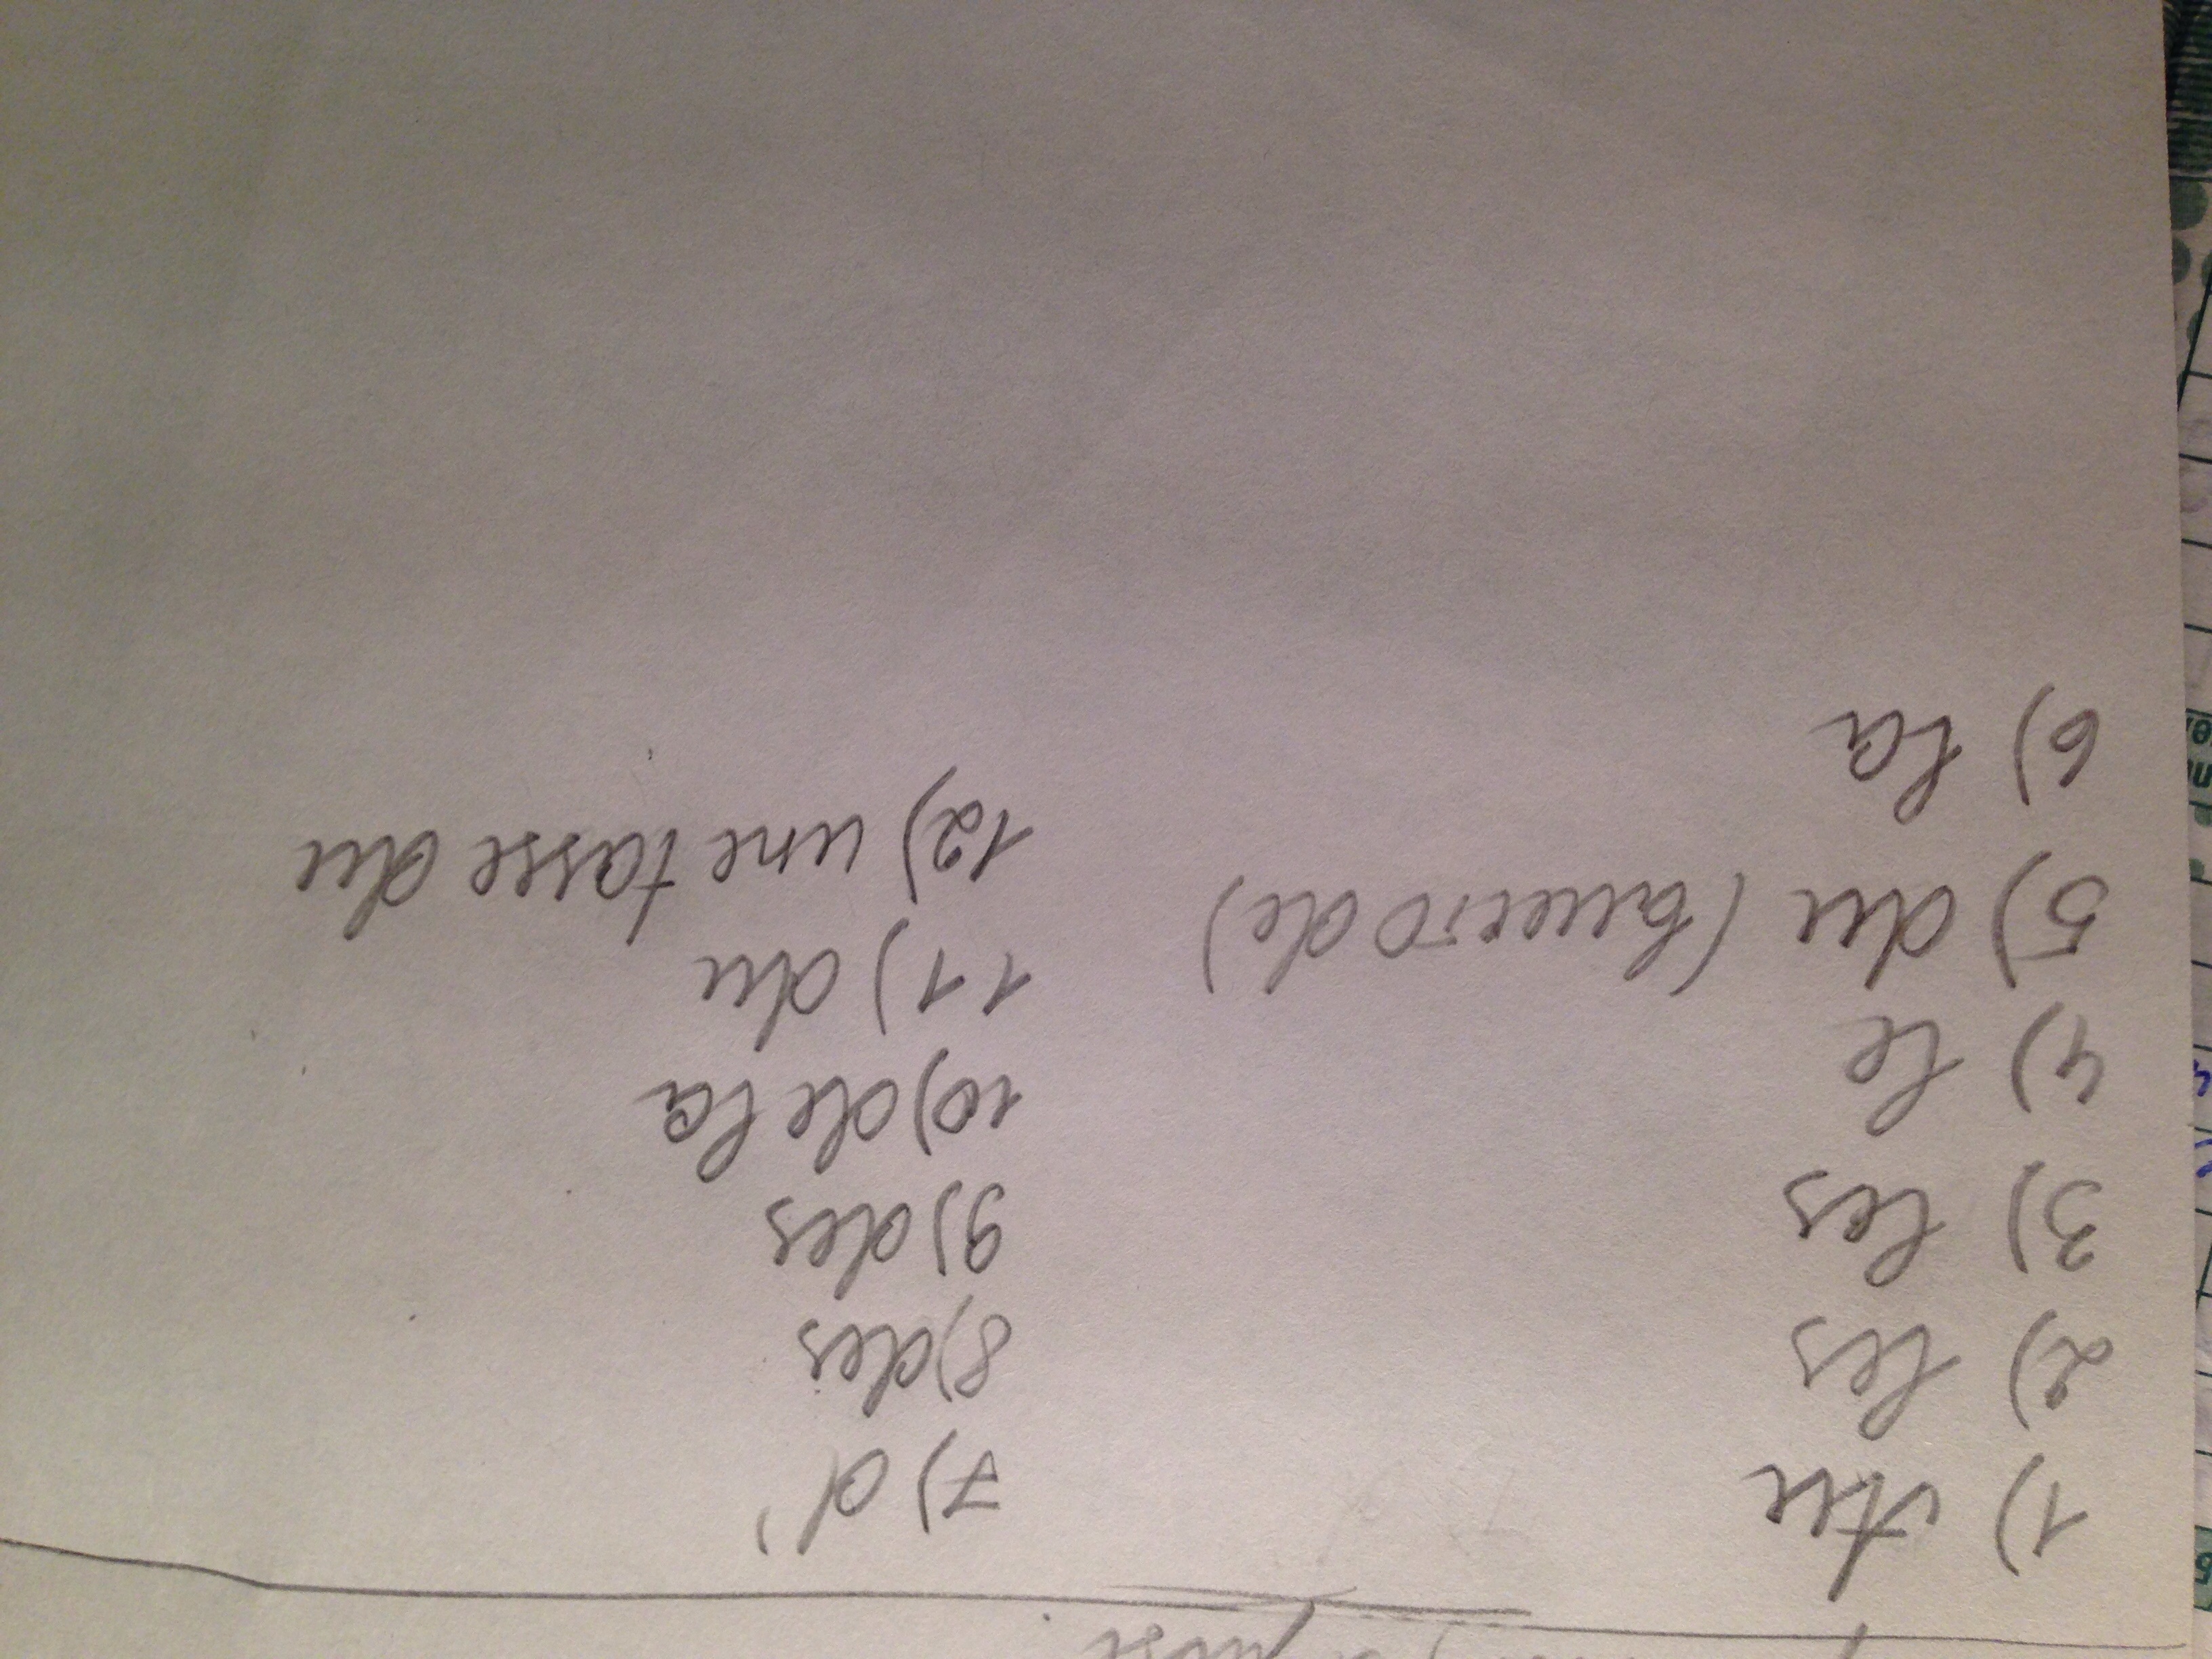 1) Au
2) les
3) les
4) le
5) du (вместо de)
6) la
7) d'
8) des
9) des
10) de la
11) du
12) une tasse du